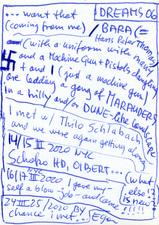 ... want that
(coming from me)
DREAMS 06
BARA (=
(with a uniform with many
and a Machine Gun + Pistols dangling
+ and I (just a machine gun)
are leading a gang of MARAUDERS
in a hilly and/or DUNE-like landscape
I met w/ Philo Schlabach
and we were again getting along
14/15 III 2020 NYC
Schapo HD, OLBERT...
16/17 III 2020 I gave my-
self a blow-job and came
(what
else
is new?
!!!)
24 III 25/2020 by
chance I met... Egon